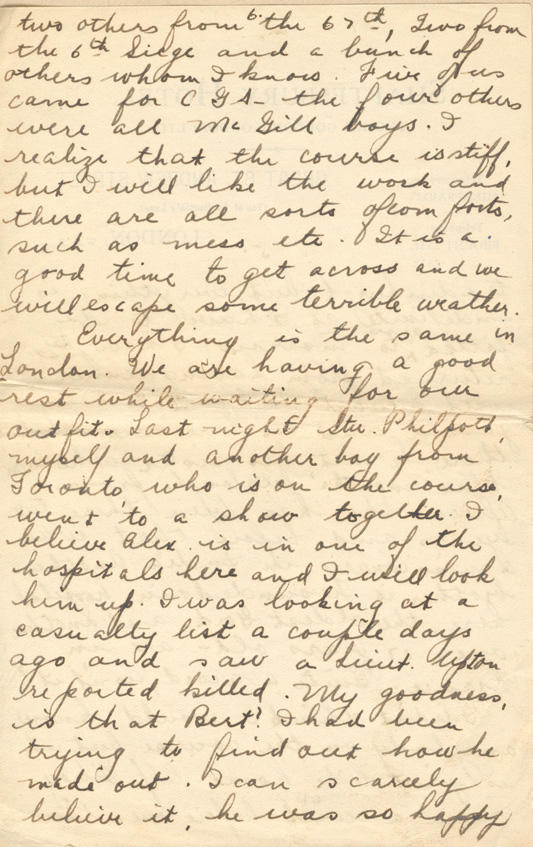 two others from the 67th, Two from
the 6th Siege and a bunch of
others whom I know. Five of us
came for CGA - the four others
were all McGill boys. I
realize that the course is stiff,
but I will like the work and
there are all sorts of comforts,
such as mess etc. It is a
good time to get across and we
will escape some terrible weather.
Everything is the same in
London. We are having a good
rest while waiting for our
outfit. Last night Stu. Philpott,
myself and another boy from
Toronto who is on the course,
went to a show together. I
believe Alex. is in one of the
hospitals here and I will look
him up. I was looking at a
casualty list a couple days
ago and saw a Lieut. Upton
reported killed. My goodness,
is that Bert? I had been
trying to find out how he
made out. I can scarcely
believe it, he was so happy